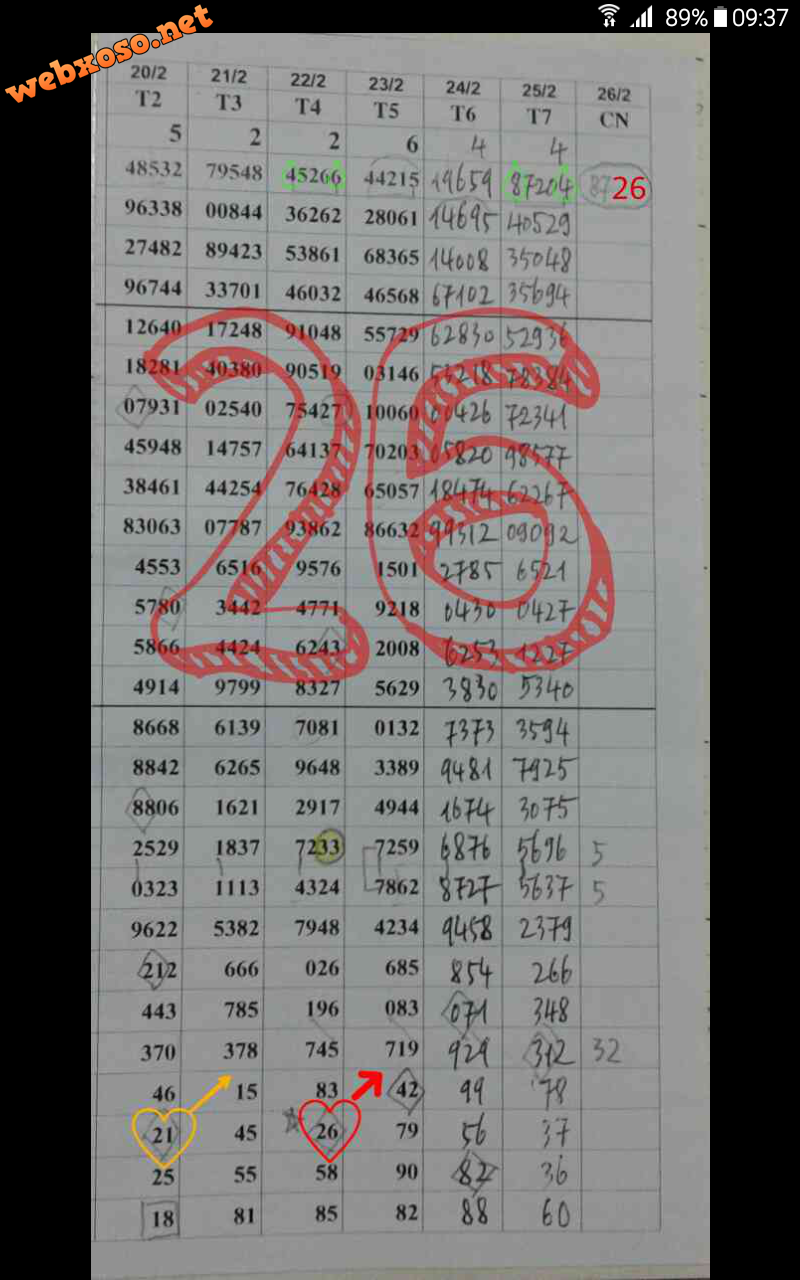 89% 09:37
webxoso.net
20/2 21/2 22/2 23/2 24/2 25/2 26/2
T2 T3 T4 T5 T6 T7 CN
5 2 2 6 4 4
48532 79548 45266 44215 19659 87204 87 26
96338 00844 36262 28061 14695 40529
27482 89423 53861 68365 14008 35048
96744 33701 46032 46568 67102 35694
12640 17248 91048 55729 62830 52936
18281 40380 90519 03146 53218 78384
07931 02540 75427 10060 00426 72341
45948 14757 64137 70203 05820 98577
38461 44254 76428 65057 18474 62267
83063 07787 93862 86632 99312 09092
4553 6516 9576 1501 2785 6521
5780 3442 4771 9218 0430 0427
5866 4424 6243 2008 6253 1227
4914 9799 8327 5629 3830 5340
26
8668 6139 7081 0132 7373 3594
8842 6265 9648 3389 9481 7925
8806 1621 2917 4944 1674 3075
2529 1837 7233 7259 6876 5696 5
0323 1113 4324 7862 8727 5637 5
9622 5382 7948 4234 9458 2379
212 666 026 685 854 266
443 785 196 083 071 348
370 378 745 719 929 312 32
46 15 83 42 99 78
21 45 26 79 56 37
25 55 58 90 82 36
18 81 85 82 88 60